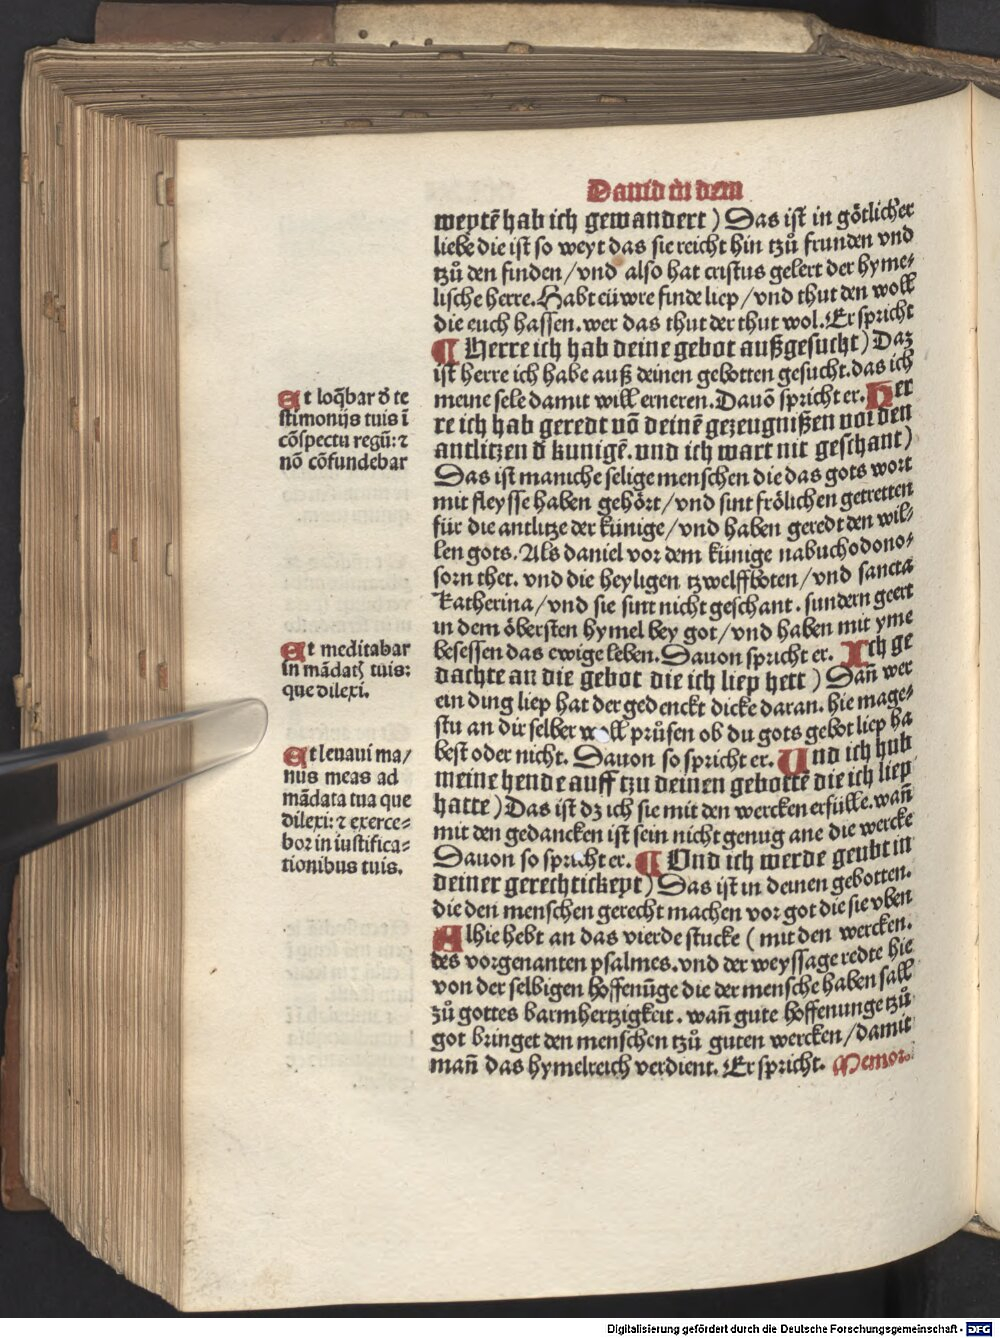 Dauid in dem
weytē hab ich gewandert) Das ist in götlicher
liebe die ist so weyt das sie reicht hin tzů frunden vnd
tzů den finden/vnd also hat cristus gelert der hyme⸗
lische herre. Habt eüwre finde liep/vnd thut den woll
die euch hassen. wer das thut der thut wol. Er spricht
¶ Herre ich hab deine gebot außgesucht) Daz
ist herre ich habe auß deinen gebotten gesucht. das ich
meine sele damit will erneren. Dauō spricht er. Her
re ich hab geredt vō deinē gezeugnißen vor den
antlitzen d̄ kunigē. vnd ich wart nit geschant)
Das ist maniche selige menschen die das gots wort
mit fleysse haben gehört/vnd sint frölichen getretten
für die antlitze der künige/vnd haben geredt den wil⸗
len gots. Als daniel vor dem künige nabuchodono⸗
sorn thet. vnd die heyligen tzwelffboten/vnd sancta
Katherina/vnd sie sint nicht geschant. sundern geert
in dem öbersten hymel bey got/vnd haben mit yme
besessen das ewige leben. Dauon spricht er. Ich ge
dachte an die gebot die ich liep hett) Dañ wer
ein ding liep hat der gedenckt dicke daran. hie mage⸗
stu an dir selber woll průfen ob du gots gebot liep ha
best oder nicht. Dauon so spricht er. Und ich hub
meine hende auff tzu deinen gebottē die ich liep
hatte) Das ist dz ich sie mit den wercken erfülle. wañ
mit den gedancken ist sein nicht genug ane die wercke
Dauon so spricht er. ¶ Vnd ich werde geubt in
deiner gerechtickeyt) Das ist in deinen gebotten.
die den menschen gerecht machen vor got die sie vben
Alhie hebt an das vierde stucke (mit den wercken.
des vorgenanten psalmes. vnd der weyssage redte hie
von der selbigen hoffenūge die der mensche haben sall
zů gottes barmhertzigkeit. wañ gute hoffenunge tzů
got bringet den menschen tzů guten wercken/damit
mañ das hymelreich verdient. Er spricht. Memor.
Et loq̄bar d̄ te
stimonijs tuis ī
cōspectu regū: ⁊
nō cōfundebar
Et meditabar
in mādatꝭ tuis:
que dilexi.
Et leuaui ma/
nus meas ad
mādata tua que
dilexi: ⁊ exerce⸗
bor in iustifica⸗
tionibus tuis.
Digitalisierung gefördert durch die Deutsche Forschungsgemeinschaft - DFG